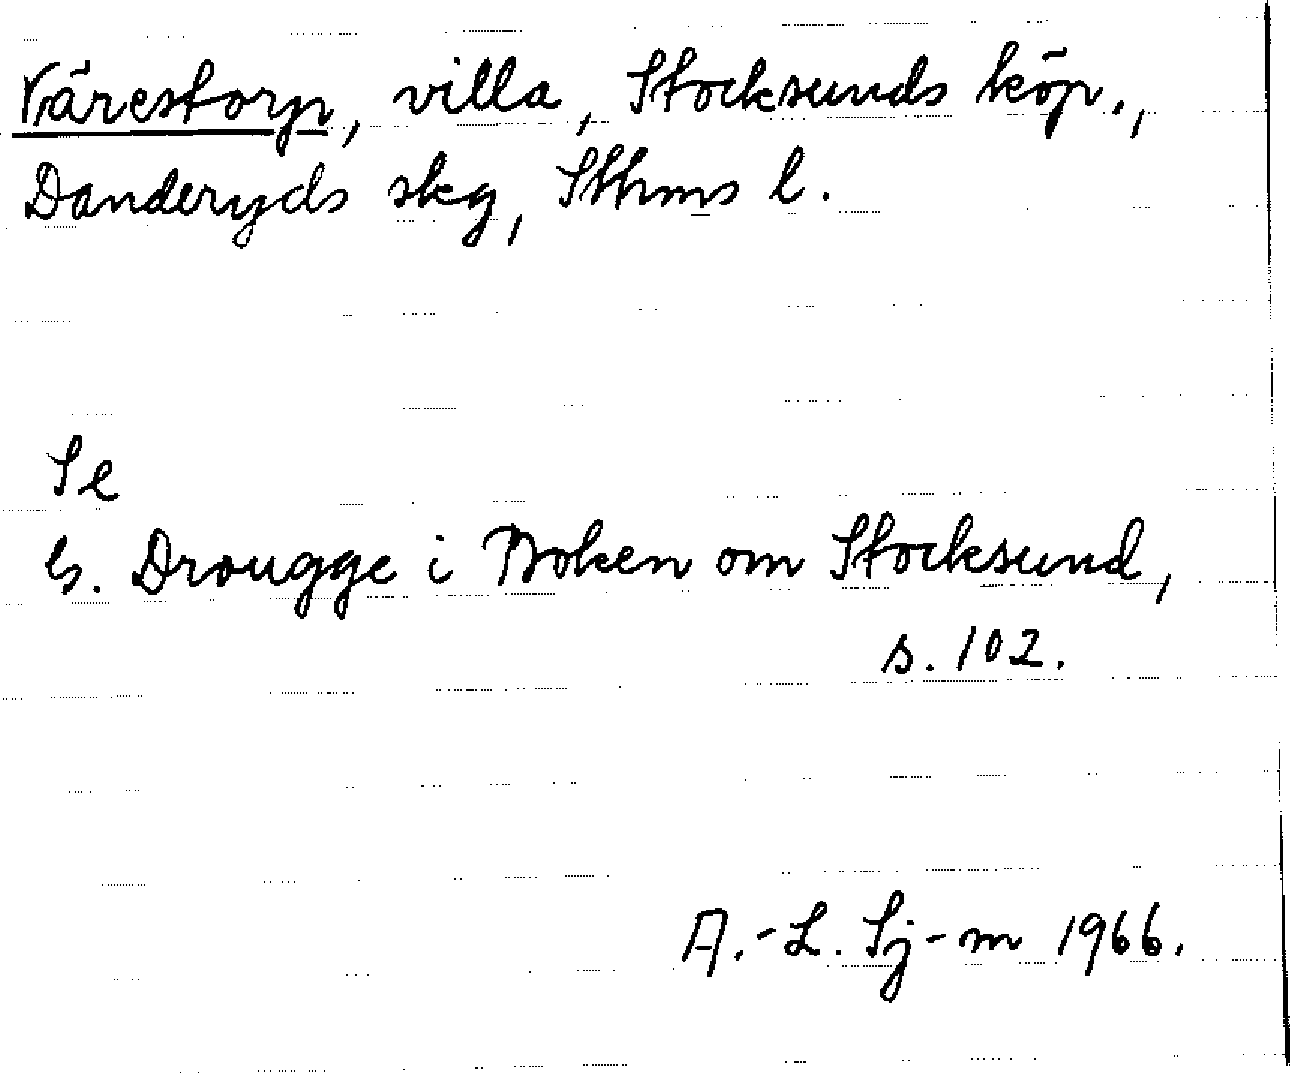 Värestorp, villa, Stocksunds köp.,
Danderyds skg, Sthms l.
Se
G. Drougge i Boken om Stocksund,
s. 102.
A.-L. Sj-m 1966.